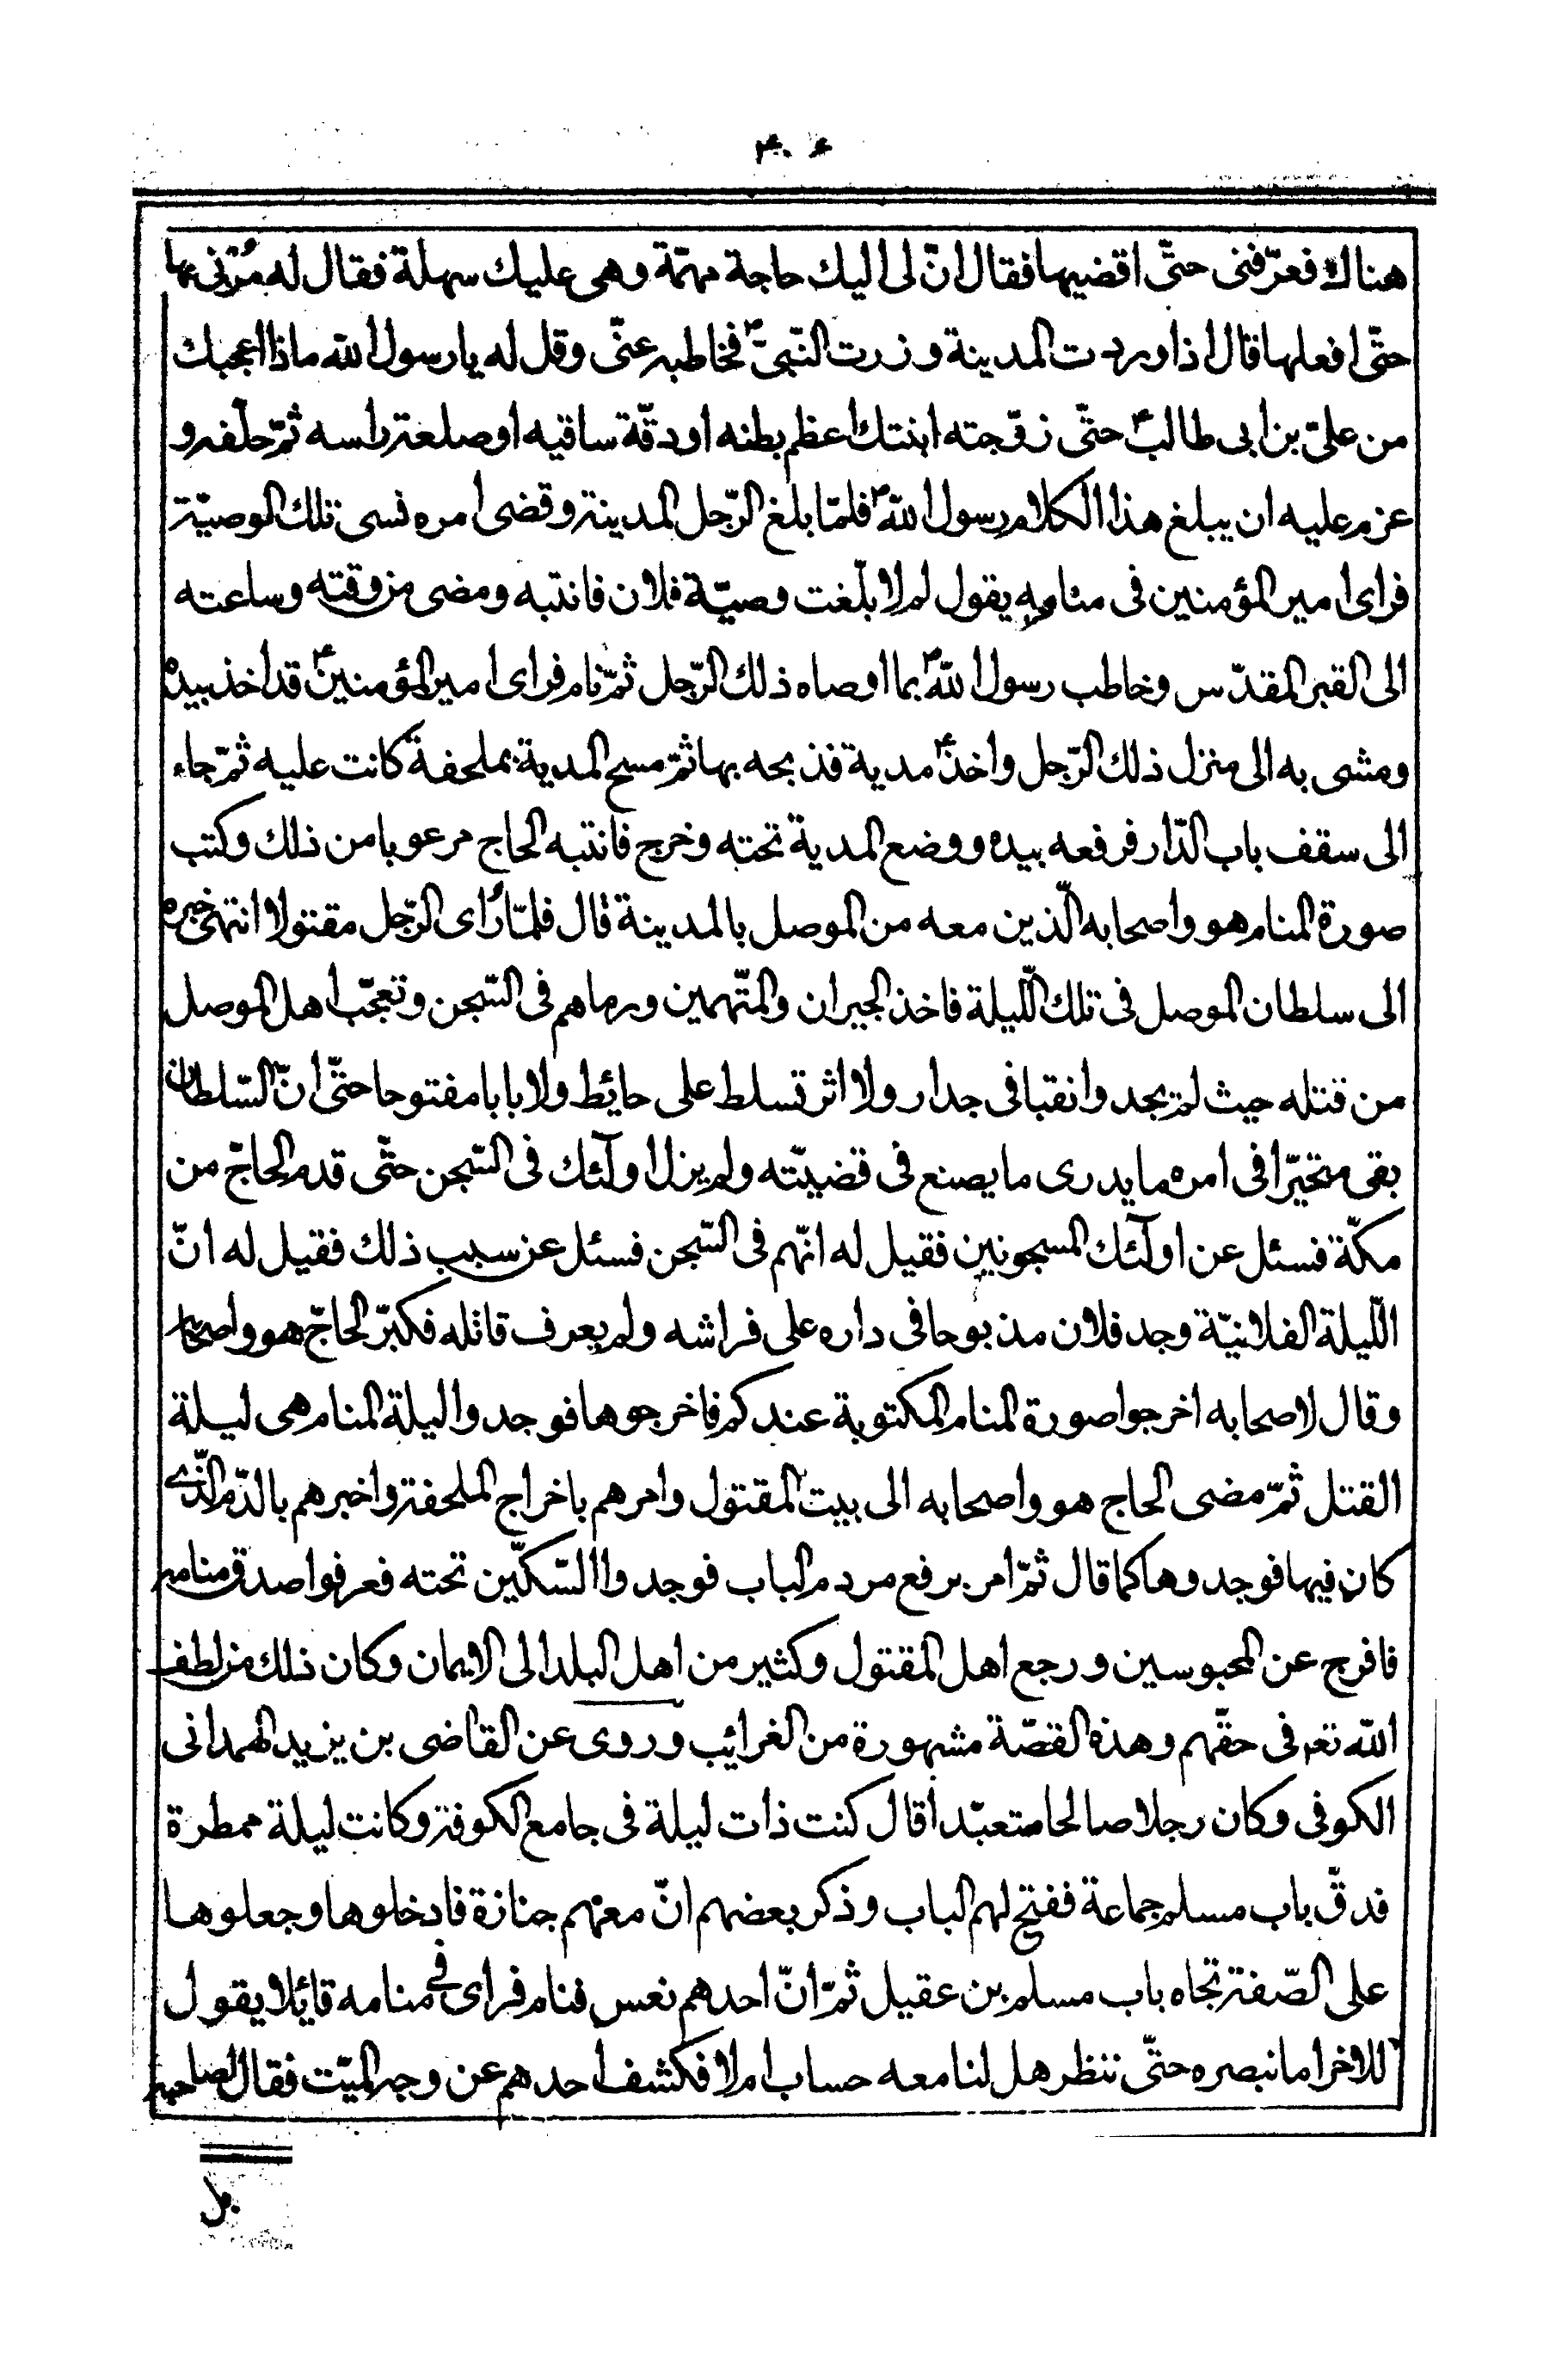 ۴۰۶
هناك فعرّفنى حتّى اقضيها فقال انّ لى اليك حاجة مهمّة وهى عليك سهلة فقال له مُرنى بها
حتّى افعلها قال اذا وردت المدينة وزرت النّبىّ ص فخاطبه عنّى وقل له يا رسول الله ماذا اعجبك
من علىّ بن ابى طالب ع حتّى زوّجته ابنتك اعظم بطنه او دقّة ساقيه او صلعة راسه ثمّ حلّفه و
عزم عليه ان يبلغ هذا الكلام رسول الله ص فلمّا بلغ الرّجل المدينة وقضى امره نسى تلك الوصيّة
فراى امير المؤمنين فى منامه يقول لم لا بلّغت وصيّة فلان فانتبه ومضى من وقته وساعته
الى القبر المقدّس وخاطب رسول الله ص بما اوصاه ذلك الرّجل ثمّ نام فراى امير المؤمنين ع قد اخذ بيده
ومشى به الى منزل ذلك الرّجل واخذ ع مدية فذبحه بها ثمّ مسح المدية بملحفة كانت عليه ثمّ جاء
الى سقف باب الدّار فرفعه بيده ووضع المدية تحته وخرج فانتبه الحاج مرعوبا من ذلك وكتب
صورة المنام هو واصحابه الّذين معه من الموصل بالمدينة قال فلمّا رُاى الرّجل مقتولا انتهى خبره
الى سلطان الموصل فى تلك اللّيلة فاخذ الجيران والمتّهمين ورماهم فى السّجن وتعجّب اهل الموصل
من قتله حيث لم يجدوا نقبا فى جدار ولا اثر تسلط على حائط ولا بابا مفتوحا حتّى انّ السّلطان
بقى متحيّرا فى امره ما يدرى ما يصنع فى قضيّته ولم يزل اولئك فى السّجن حتّى قدم الحاجّ من
مكّة فسئل عن اولئك المسجونين فقيل له انّهم فى السّجن فسئل عن سبب ذلك فقيل له انّ
اللّيلة الفلانيّة وجد فلان مذبوحا فى داره على فراشه ولم يعرف قاتله فكبّر الحاجّ هو واصحابه
وقال لاصحابه اخرجوا صورة المنام المكتوبة عندكم فاخرجوها فوجدوا ليلة المنام هى ليلة
القتل ثمّ مضى الحاج هو واصحابه الى بيت المقتول وامرهم باخراج الملحفة واخبرهم بالدّم الّذى
كان فيها فوجدوها كما قال ثمّ امر برفع مردم الباب فوجدوا السّكّين تحته فعرفوا صدق منامه
فافرج عن المحبوسين ورجع اهل المقتول وكثير من اهل البلد الى الايمان وكان ذلك من لطف
الله تع فى حقّهم وهذه القصّة مشهورة من الغرائب وروى عن القاضى بن يزيد الهمدانى
الكوفى وكان رجلا صالحا متعبّدا قال كنت ذات ليلة فى جامع الكوفة وكانت ليلة ممطرة
فدقّ باب مسلم جماعة ففتح لهم الباب وذكر بعضهم انّ معهم جنازة فادخلوها وجعلوها
على الصّفة تجاه باب مسلم بن عقيل ثمّ انّ احدهم نعس فنام فراى فى منامه قائلا يقول
للاخر اما نبصره حتّى ننظر هل لنا معه حساب ام لا فكشف احدهم عن وجه الميّت فقال لصاحبه
بل